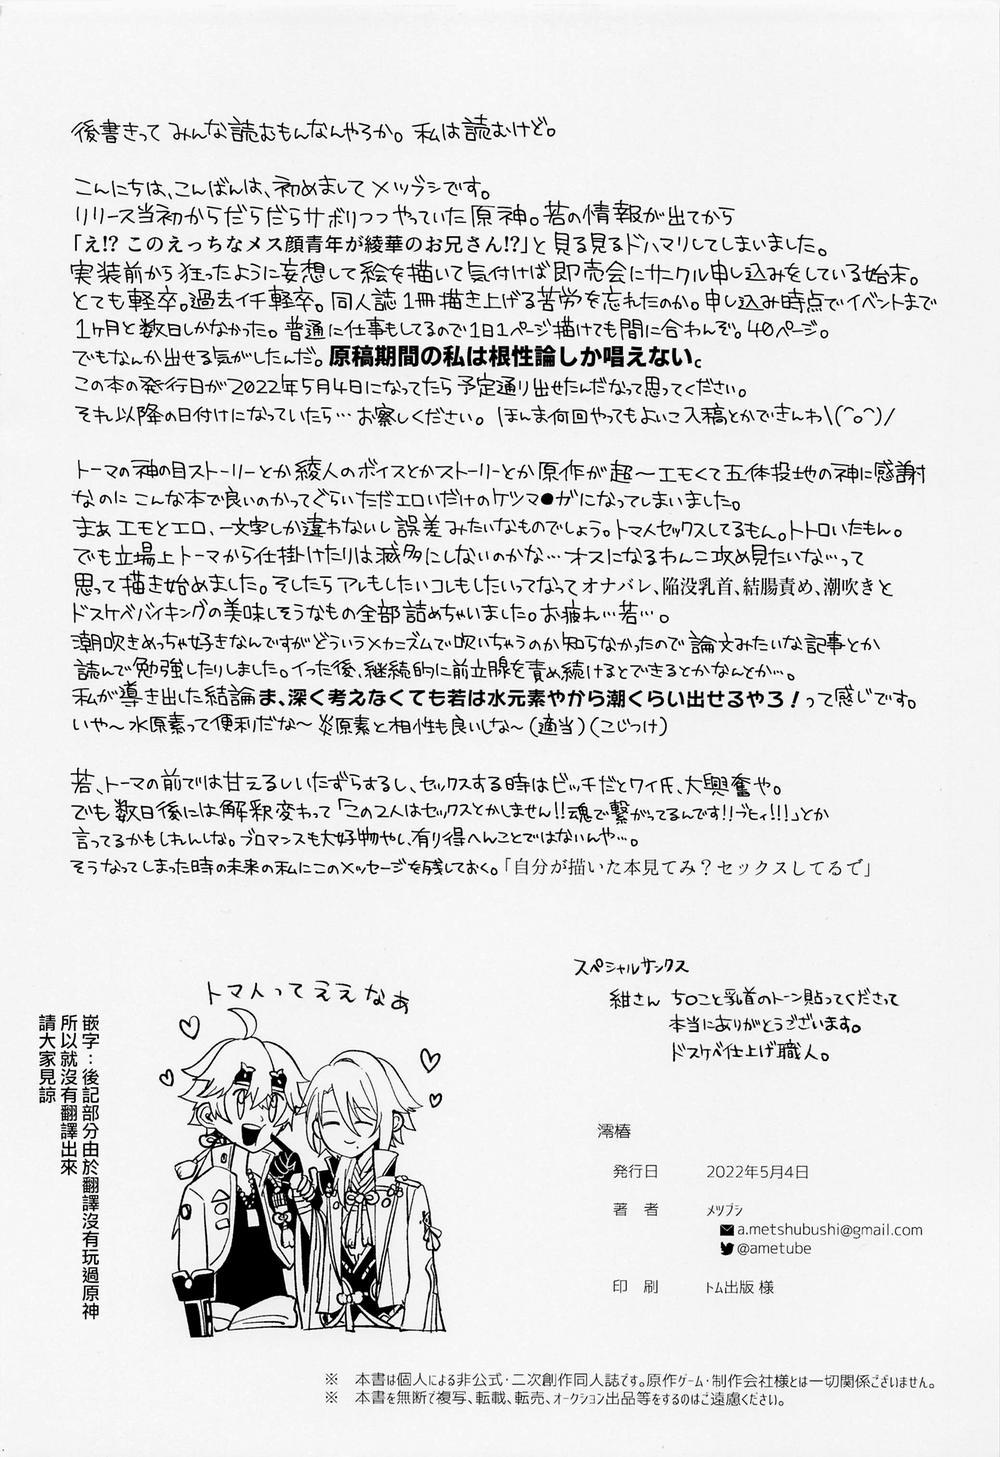 後書きって みんな読むもんなんやろか。私は読むけど。
こんにちは、こんばんは、初めまして メツブシです。
リリース当初からだらだらサボりつつやっていた原神。若の情報が出てから
「え!? このえっちなメス顔青年が綾華のお兄さん!?」と見る見るドハマリしてしまいました。
実装前から狂ったように妄想して絵を描いて気付けば即売会にサークル申し込みをしている始末。
とても軽卒。過去イチ軽卒。同人誌1冊描き上げる苦労を忘れたのか。申し込み時点でイベントまで
1ヶ月と数日しかなかった。普通に仕事もしてるので1日1ページ描けても間に合わんぞ。40ページ。
でもなんか出せる気がしたんだ。原稿期間の私は根性論しか唱えない。
この本の発行日が2022年5月4日になってたら予定通り出せたんだなって思ってください。
それ以降の日付けになっていたら…お察しください。ほんま何回やってもよいこ入稿とかできんわ\(^o^)/
トーマの神の目ストーリーとか綾人のボイスとかストーリーとか原作が超〜エモくて五体投地の神に感謝
なのにこんな本で良いのかってぐらいただエロいだけのケツマ●ガになってしまいました。
まぁエモとエロ、一文字しか違わないし誤差みたいなものでしょう。トマ人セックスしてるもん。トトロいたもん。
でも立場上トーマから仕掛けたりは滅多にしないのかな…オスになるわんこ攻め見たいな…って
思って描き始めました。そしたらアレもしたいコレもしたいってなってオナバレ、陥没乳首、結腸責め、潮吹きと
ドスケベバイキングの美味しそうなもの全部詰めちゃいました。お疲れ…若…。
潮吹きめっちゃ好きなんですがどういうメカニズムで吹いちゃうのか知らなかったので論文みたいな記事とか
読んで勉強したりしました。イった後、継続的に前立腺を責め続けるとできるとかなんとか…。
私が導き出した結論ま、深く考えなくても若は水元素やから潮くらい出せるやろ!って感じです。
いや〜水原素って便利だな〜炎原素と相性も良いしな〜(適当)(こじつけ)
若、トーマの前では甘えるしいたずらするし、セックスする時はビッチだとワイ氏、大興奮や。
でも数日後には解釈変わって「この2人はセックスとかしません!!魂で繋がってるんです!!ブヒィ!!!」とか
言ってるかもしれんしな。ブロマンスも大好物やし、有り得へんことではないんや…。
そうなってしまった時の未来の私にこのメッセージを残しておく。「自分が描いた本見てみ?セックスしてるで」
スペシャルサンクス
紺さん ち〇こと乳首のトーン貼ってくださって
本当にありがとうございます。
ドスケベ仕上げ職人。
トマ人ってええなぁ
嵌字:後記部分由於翻譯沒有玩過原神
所以就沒有翻譯出來
請大家見諒
澪椿
発行日 2022年5月4日
著 者 メツブシ
a.metshubushi@gmail.com
@ametube
印 刷 トム出版 様
※ 本書は個人による非公式・二次創作同人誌です。原作ゲーム・制作会社様とは一切関係ございません。
※ 本書を無断で複写、転載、転売、オークション出品等をするのはご遠慮ください。